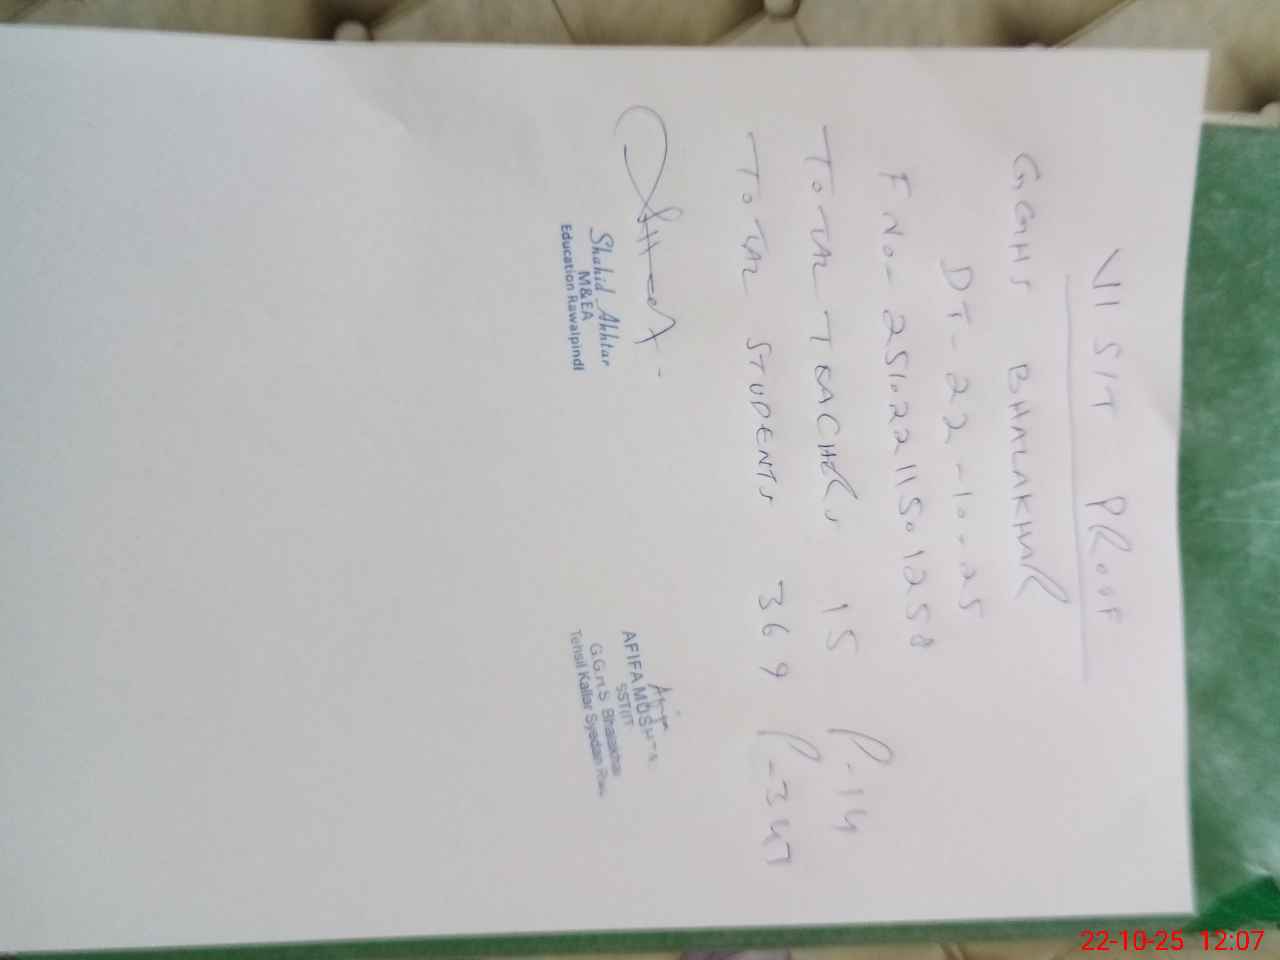 VISIT PROOF
GGHS BHALAKHAR
DT- 22-10-25
F No- 25102211501258
TOTAL TEACHERS 15 P-14
TOTAL STUDENTS 369 P-347
Shahid Akhtar
M&EA
Education Rawalpindi
AFIFA
SST(IT
G.G.H S Bhalakhar
Tehsil Kallar Syedan
22-10-25 12:07